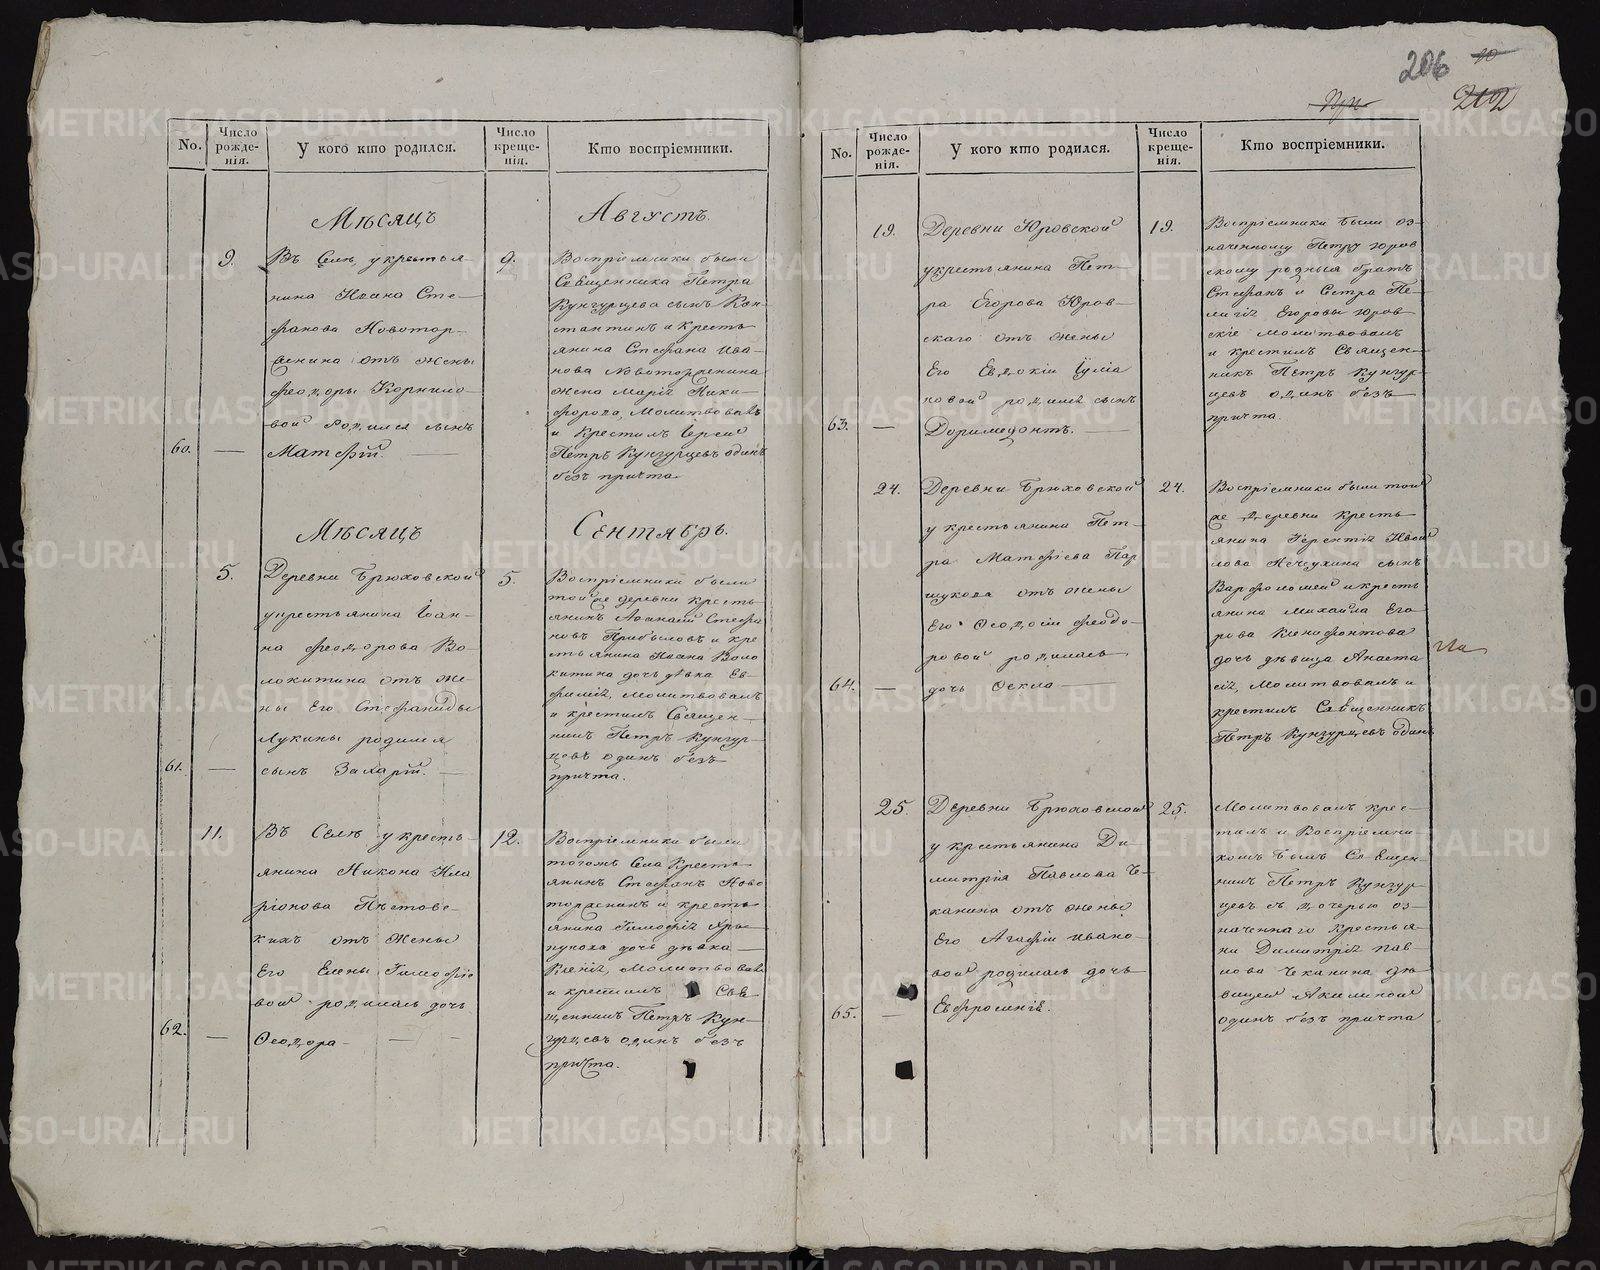 206
10
212
No.
Число рожде-нія.
У кого кто родился.
Число креще-нія.
Кто воспріемники.
Мѣсяцъ
Августъ.
9.
Въ Селѣ, у крестья
нина Ивана Сте-
фанова Новотор-
женина отъ жены
Феодоры Корнило-
вой родился сынъ
60.
Матфій.
9.
Воспріемники были
Священника Петра
Кунгурцева сынъ Кон-
стантинъ и кресть
янина Стефана Ива-
нова Новоторженина
жена Марія Ники-
форова, Молитвовалъ
и Крестилъ Іерей
Петръ Кунгурцевъ одинъ
безъ причта.
Мѣсяцъ
Сентябрь.
5.
Деревни Брюховской
у крестьянина Іоан-
на Феодорова Во-
локитина отъ же-
ны Его Стефаниды
Лукины родился
61.
сынъ Захарій.
5.
Воспріемники были
той же деревни кресть
янинъ Афанасій Стефа
новъ Прибыловъ и кре
стьянина Ивана Воло
китина дочь дѣвка Ев-
фимія, Молитвовалъ
и крестилъ Священ-
никъ Петръ Кунгур-
цевъ одинъ безъ
причта.
11.
Въ Селѣ у кресть-
янина Никона Ила
ріонова Пѣтовс-
кихъ отъ жены
Его Елены Тимофіе
вой родилась дочь
62.
Феодора
12.
Воспріемники были
тогожъ Села Кресть
янинъ Стефанъ Ново
торженинъ и кресть
янина Тимофія
дочь дѣвка
Ксенія, Молитвовалъ
и крестилъ Свя
щенникъ Петръ Кун-
гурцевъ одинъ безъ
причта.
No.
Число рожде-нія.
У кого кто родился.
Число креще-нія.
Кто воспріемники.
19.
Деревни Юровской
у крестьянина Пет-
ра Егорова Юров-
скаго отъ жены
Его Евдокіи Іуліа
новой родился сынъ
63.
Доримедонтъ.
19.
Воспріемники были оз-
наченному Петру Юров
скому родныя братъ
Стефанъ и Сестра Пе-
лагія Егоровы Юров-
скіе Молитвовалъ
и крестилъ Священ-
никъ Петръ Кунгур-
цевъ одинъ безъ
причта.
24.
Деревни Брюховской
у крестьянина Пет-
ра Матфіева Пар
шукова отъ жены
Его Феодосіи Феодо-
ровой родилась
64.
дочь Фекла
24.
Воспріемники были той
же деревни кресть
янина Терентія
сынъ
Варфоломей и кресть
янина Михайла Его
рова Ксенофонтова
дочь дѣвица Анаста
сія, Молитвовалъ и
крестилъ Священникъ
Петръ Кунгурцевъ одинъ
25.
Деревни Брюховской
у крестьянина Ди-
митрія Павлова Че-
канина отъ жены
Его Агафіи Ивано-
вой родилась дочь
65.
Евфросинія.
25.
Молитвовалъ крес-
тилъ и Воспріемни-
комъ былъ Священ-
никъ Петръ Кунгур-
цевъ съ дочерью оз-
наченнаго крестья-
ни Димитрія Пав-
лова Чеканина, дѣ-
вицей Акилиной
одинъ безъ причта
METRIKI.GASO-URAL.RU